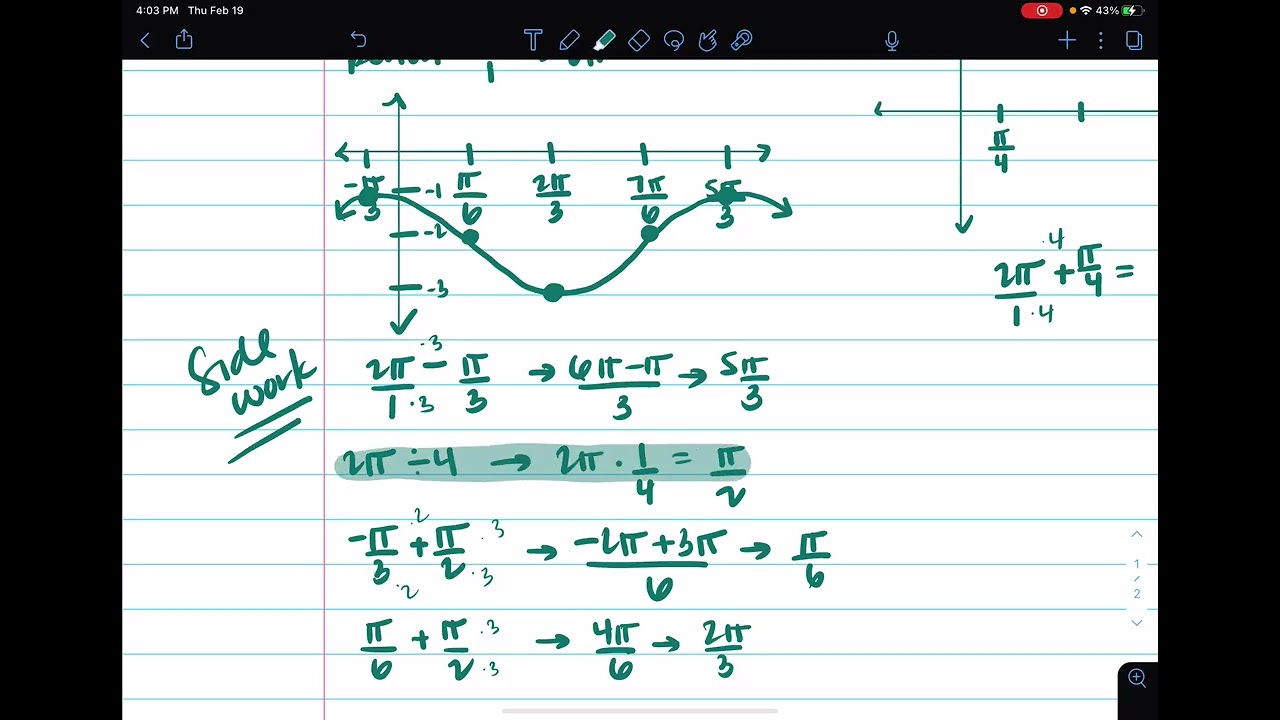 4:03 PM Thu Feb 19
43%
T
-π/3 π/6 2π/3 7π/6 5π/3
-1
-2
-3
π/4
2π/1 ·4/·4 + π/4 =
Side work
2π/1 ·3/·3 - π/3 → 6π-π/3 → 5π/3
2π ÷ 4 → 2π · 1/4 = π/2
-π/3 ·2/·2 + π/2 ·3/·3 → -2π+3π/6 → π/6
π/6 + π/2 ·3/·3 → 4π/6 → 2π/3
1/2